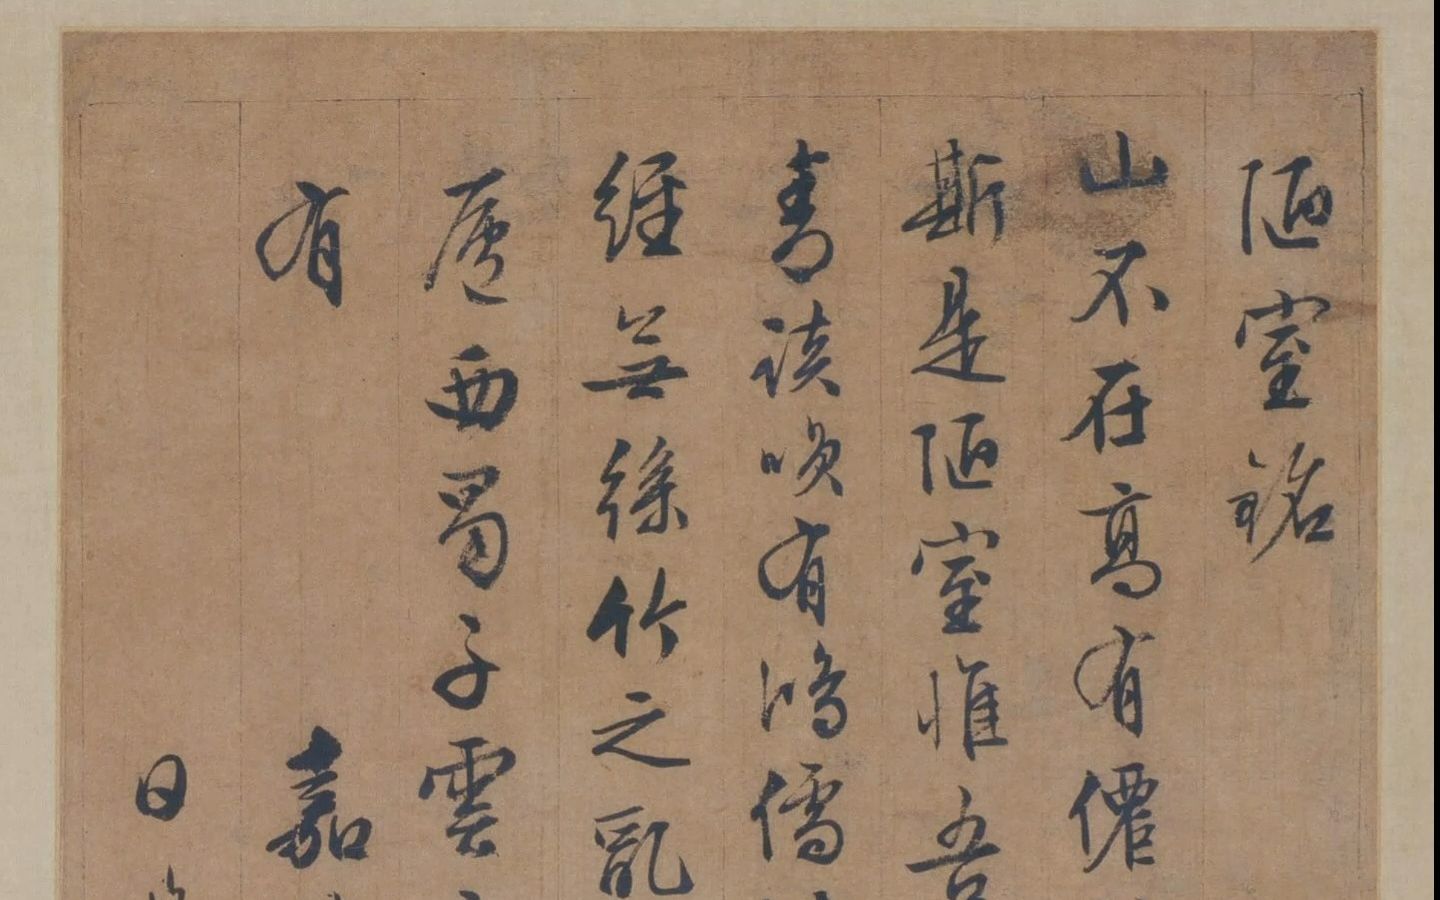 陋室銘
山不在高有僊
斯是陋室惟吾
青談唤有鴻儒
經無絲竹之亂
廬西蜀子雲
有 嘉
日